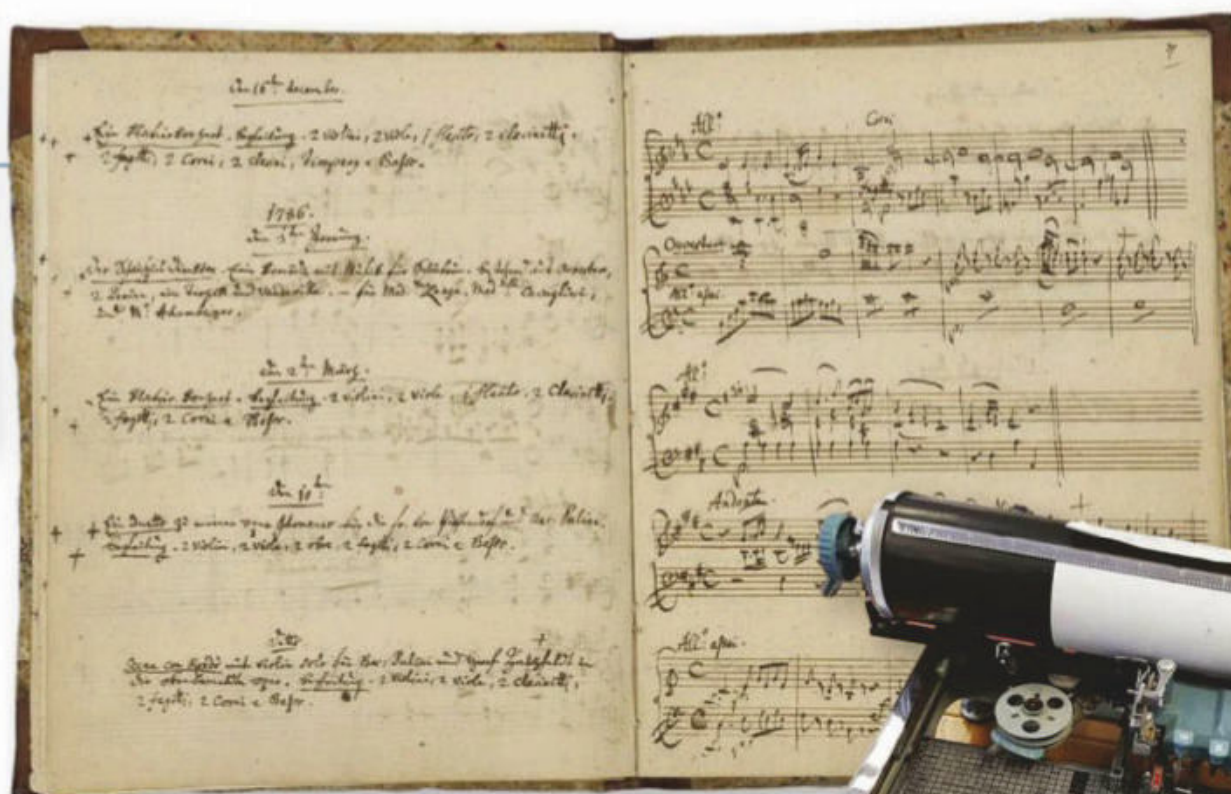 den 16t December.
Ein klavierkonzert. Begleitung. 2 violini, 2 viole, 1 flauto, 2 clarinetti,
2 fagotti, 2 Corni, 2 clarini, Timpany e Baßo.
1786.
den 3t
Der Schauspieldirektor. Eine Komödie mit Musick für bestehend aus Ouverture,
2 Arien, ein Terzett und Vaudeville. – für Mad:me Lange, Mad:selle Cavaglieri,
und Mr Adamberger.
den 2t März.
Ein klavier konzert. Begleitung. 2 violini, 2 viole, 1 flauto, 2 Clarinetti,
2 fagotti, 2 Corni e Baßo.
den 10t
Ein duetto zu meiner oper Idomeneo für die und Bar: Pulini.
Begleitung. 2 violini, 2 viole, 2 oboe, 2 fagotti, 2 Corni e Baßo.
Scena con Rondò mit violin solo für Bar: Pulini und graf Hatzfeldt in
die obenbemeldte oper. Begleitung. 2 violini, 2 viole, 2 clarinetti,
2 fagotti, 2 Corni e Baßo.
All:o Corni
Ouverture
All:o assai
All:o
Andante
All:o assai